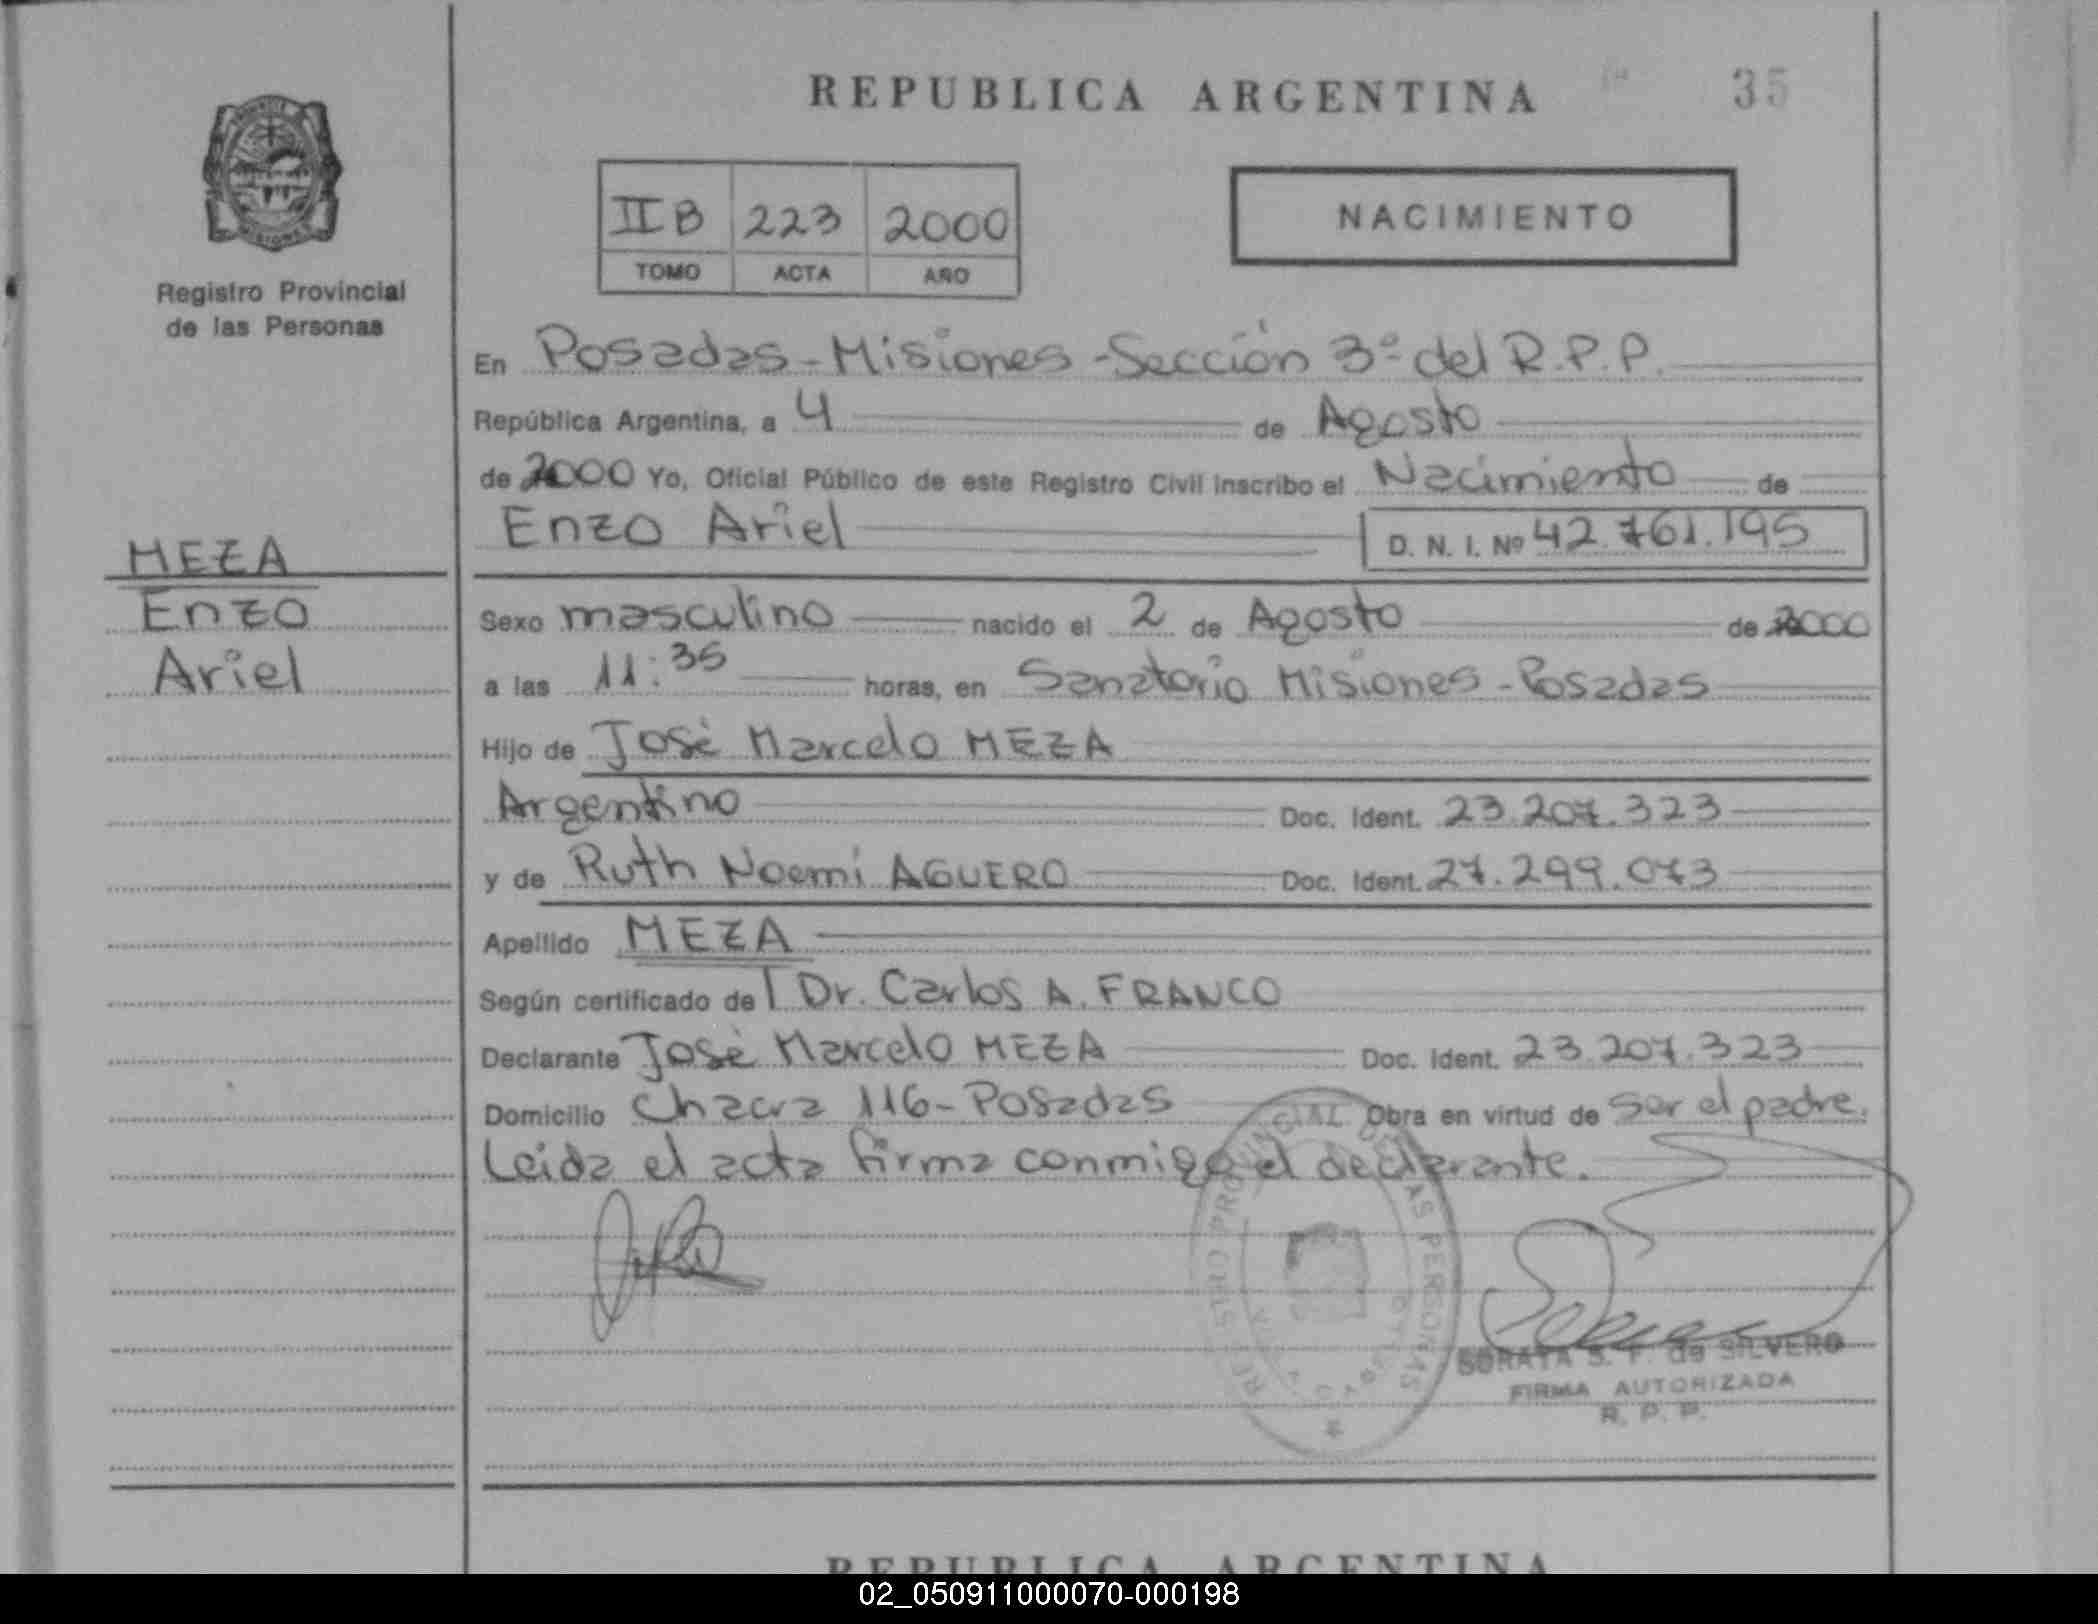 REPUBLICA ARGENTINA
35
PROVINCIA DE MISIONES
Registro Provincial
de las Personas
IIB 223 2000
TOMO ACTA AÑO
NACIMIENTO
En Posadas-Misiones-Sección 3º del R.P.P.
República Argentina, a 4 de Agosto
de 2000 Yo, Oficial Público de este Registro Civil inscribo el Nacimiento de
Enzo Ariel D. N. I. Nº 42.761.195
MEZA
Enzo
Ariel
Sexo masculino nacido el 2 de Agosto de 2000
a las 11:35 horas, en Sanatorio Misiones-Posadas
Hijo de José Marcelo MEZA
Argentino Doc. Ident. 23.207.323
y de Ruth Noemí AGUERO Doc. Ident. 27.299.073
Apellido MEZA
Según certificado del Dr. Carlos A. FRANCO
Declarante José Marcelo MEZA Doc. Ident. 23.207.323
Domicilio Chacra 116-Posadas Obra en virtud de ser el padre.
Leida el acta firma conmigo el declarante.
REGISTRO PROVINCIAL DE LAS PERSONAS
SORAYA S. F. de SILVERO
FIRMA AUTORIZADA
R. P. P.
REPUBLICA ARGENTINA
02_050911000070-000198